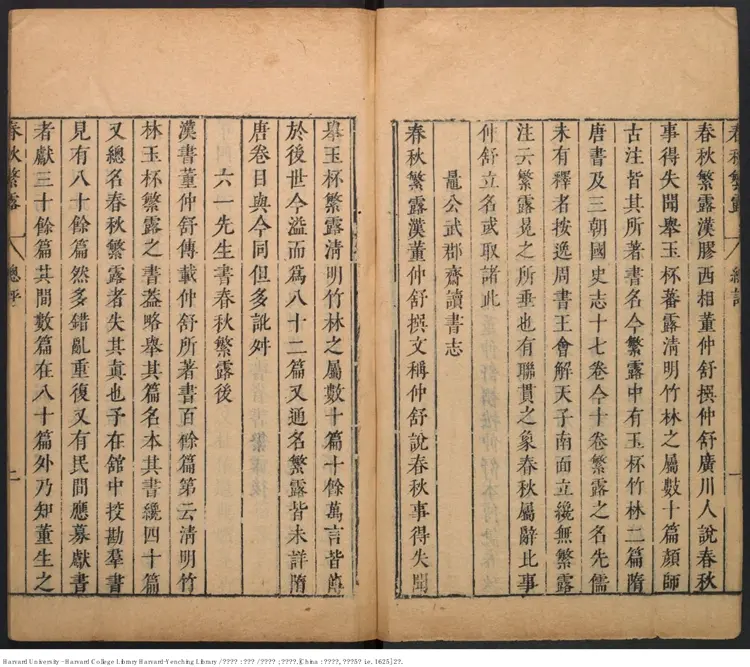 春秋繁露漢膠西相董仲舒撰仲舒廣川人說春秋
事得失聞舉玉杯蕃露清明竹林之屬數十篇顏師
古注皆其所著書名今繁露中有玉杯竹林二篇隋
唐書及三朝國史志十七卷今十卷繁露之名先儒
未有釋者按逸周書王會解天子南面立絻無繁露
注云繁露冕之所垂也有聯貫之象春秋屬辭比事
仲舒立名或取諸此
鼂公武郡齋讀書志
春秋繁露漢董仲舒撰文稱仲舒說春秋事得失聞
舉玉杯繁露清明竹林之屬數十篇十餘萬言皆傳
於後世今溢而爲八十二篇又通名繁露皆未詳隋
唐卷目與今同但多訛舛
六一先生書春秋繁露後
漢書董仲舒傳載仲舒所著書百餘篇第云清明竹
林玉杯繁露之書葢略舉其篇名本其書纔四十篇
又總名春秋繁露者失其真也予在舘中挍勘羣書
見有八十餘篇然多錯亂重復又有民間應募獻書
者獻三十餘篇其間數篇在八十篇外乃知董生之
春秋繁露
總評
二
Harvard University - Harvard College Library Harvard-Yenching Library / ???? : ??? / ???? ; ????.[China : ????, ???5? ie. 1625] 2?.